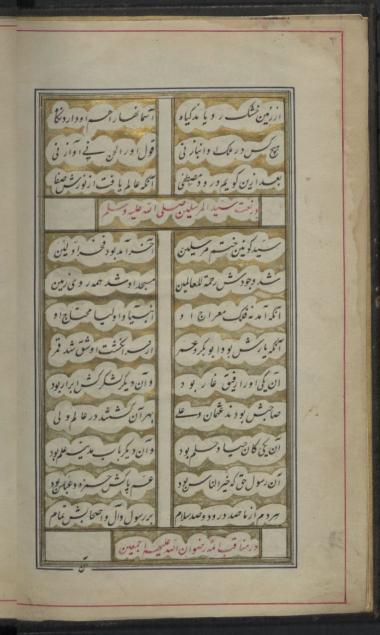 از زمین خشک رویاند گیاه آسمانها را هم او دارد نگاه
هیچ کس در ملک او انباز نی قول او را لحن نی آواز نی
بعد ازین گوییم درود مصطفی آنکه عالم یافت از نورش صفا
در نعت سید المرسلین صلی الله علیه وسلم
سید کونین ختم مرسلین آخر آمد بود فخر اولین
شد وجودش رحمة للعالمین مسجد او شد همه روی زمین
آنکه آمد نه فلک معراج او انبیا و اولیا محتاج او
آنکه یارش بود ابوبکر و عمر از سر انگشت او شق شد قمر
آن یکی او را رفیق غار بود وآن دیگر لشکرکش ابرار بود
صاحبش بودند عثمان و علی بهر آن گشتند در عالم ولی
آن یکی کان حیا و حلم بود وآن دیگر باب مدینه علم بود
آن رسول حق که خیر الناس بود عم پاکش حمزه و عباس بود
هر دم از ما صد درود و صد سلام بر رسول و آل و اصحابش تمام
در مناقب ائمه رضوان الله علیهم اجمعین
آن